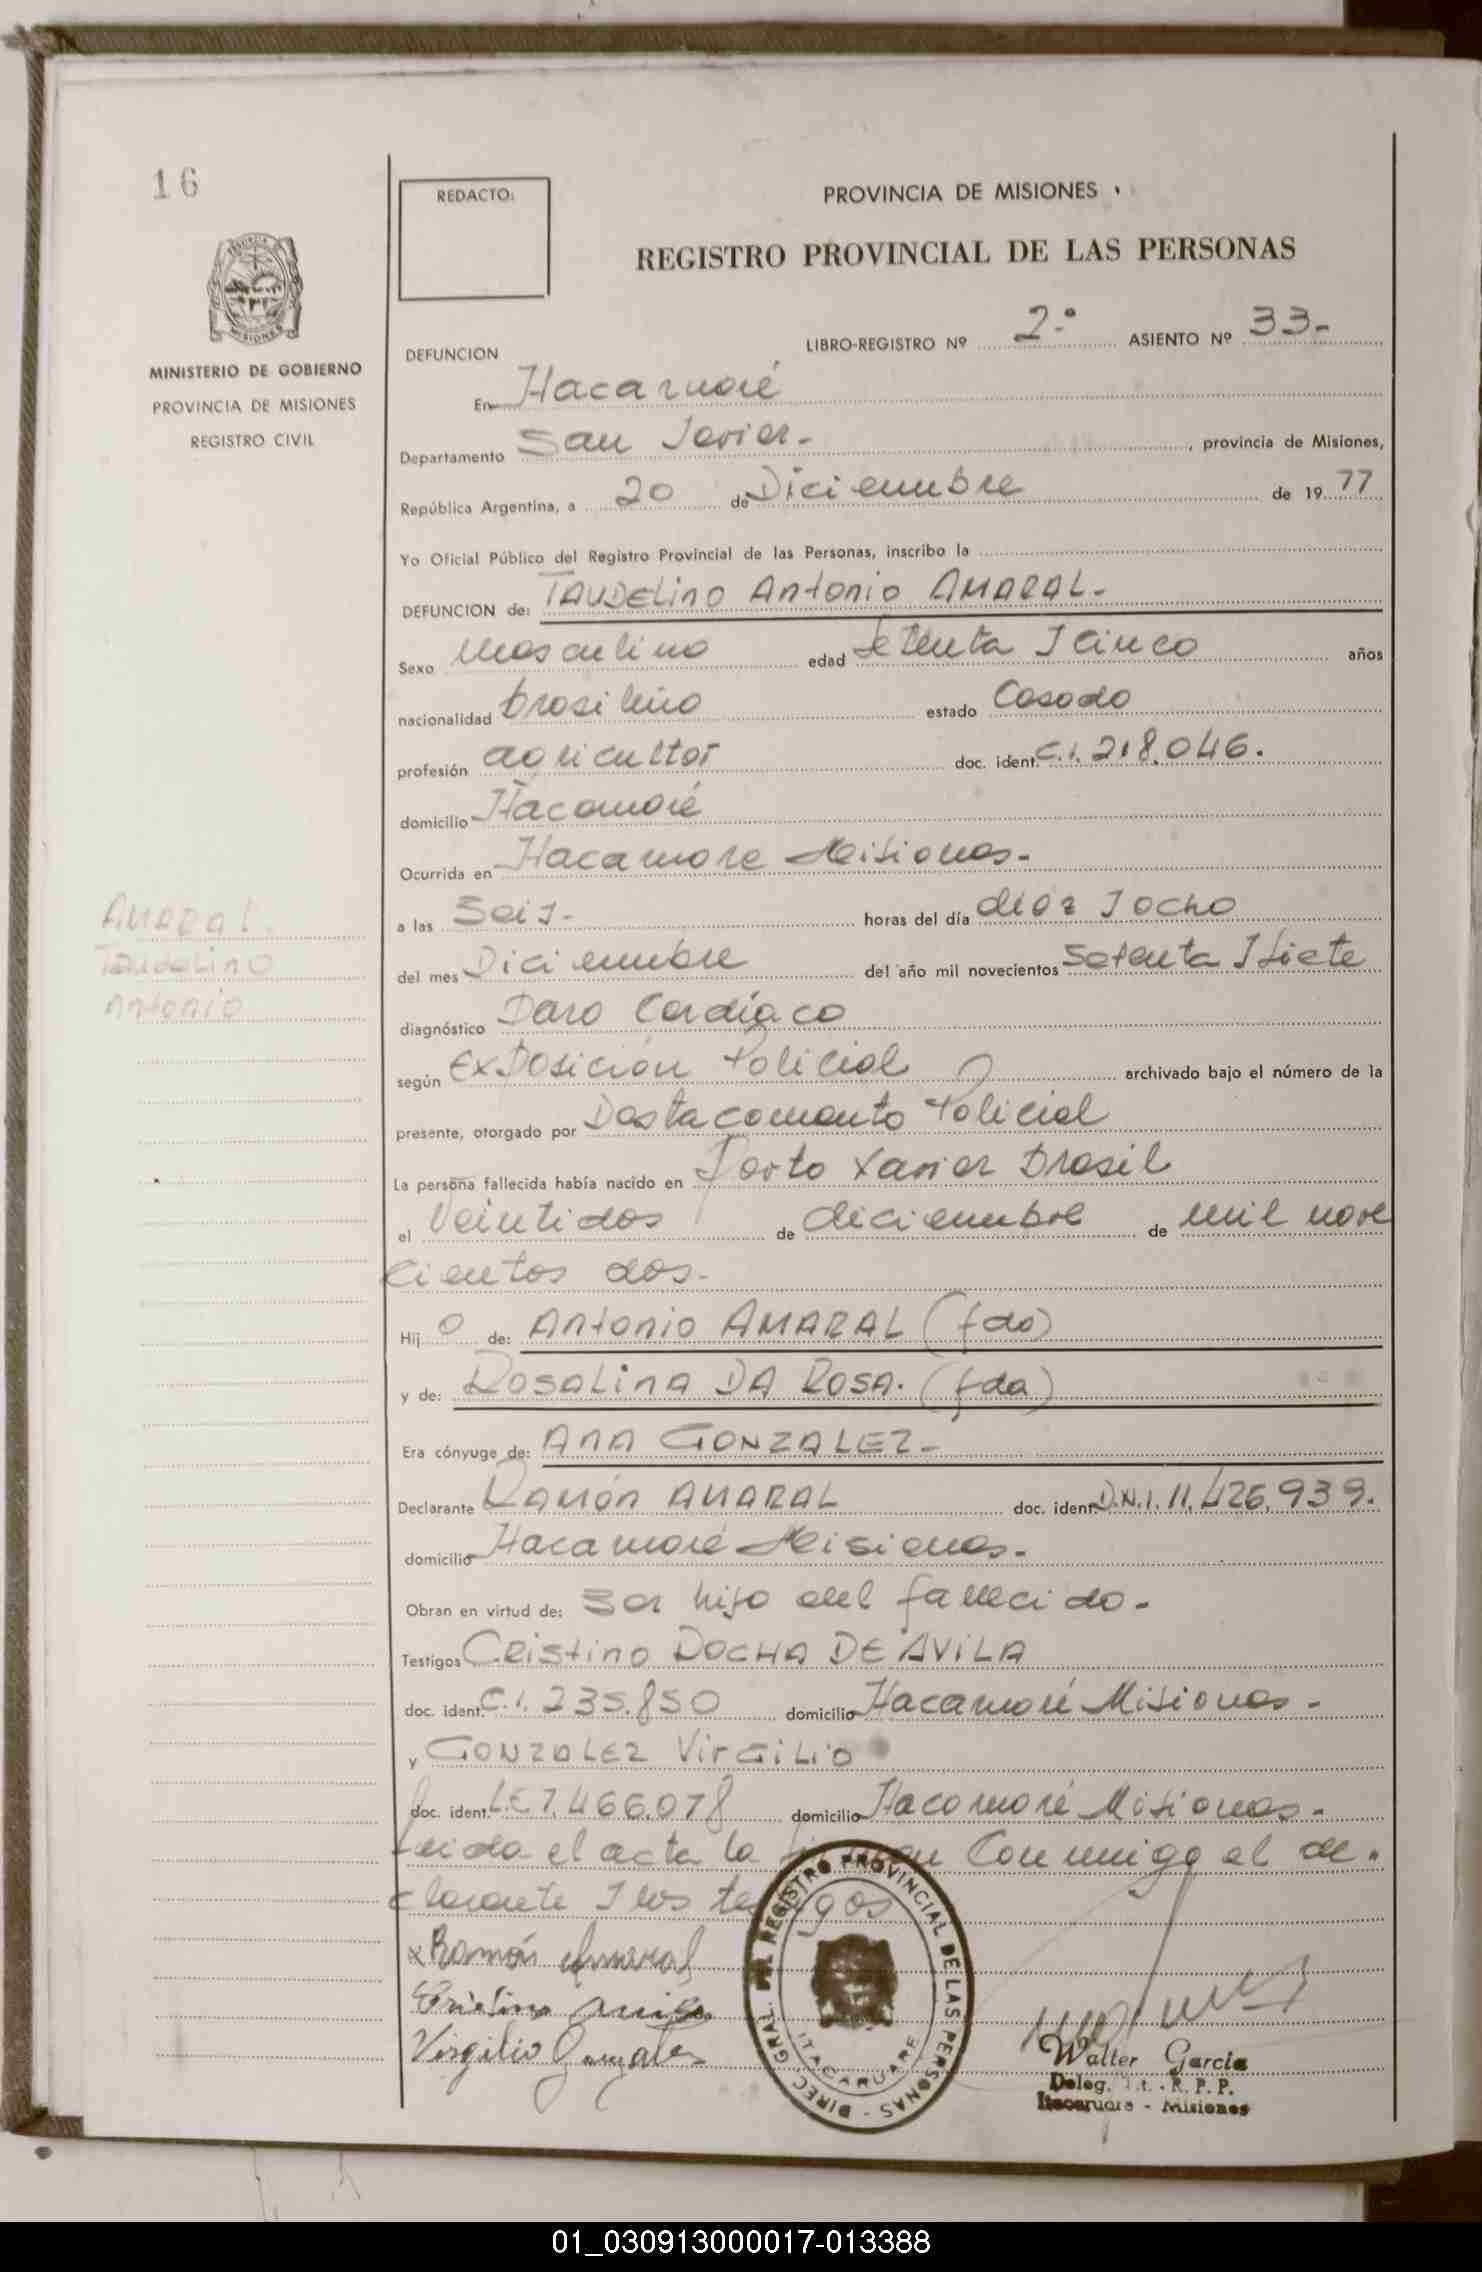 16
REDACTO:
PROVINCIA DE MISIONES
REGISTRO PROVINCIAL DE LAS PERSONAS
MISIONES
MINISTERIO DE GOBIERNO
PROVINCIA DE MISIONES
REGISTRO CIVIL
LIBRO-REGISTRO Nº 2.º ASIENTO Nº 33-
DEFUNCION
En Itacaruaré
Departamento San Javier.- , provincia de Misiones,
República Argentina, a 20 de Diciembre de 19 77
Yo Oficial Público del Registro Provincial de las Personas, inscribo la
DEFUNCION de: TAUDELino Antonio AMARAL-
Sexo Masculino edad Setenta I Cinco años
nacionalidad brasileño estado Casado
profesión agricultor doc. ident. C.I. 218.046.
domicilio Itacaruaré
Ocurrida en Itacaruare Misiones-
a las Seis- horas del día diez I ocho
del mes Diciembre del año mil novecientos Setenta I Siete
diagnóstico Paro Cardíaco
según Exposición Policial archivado bajo el número de la
presente, otorgado por Destacamento Policial
La persona fallecida había nacido en Porto Xavier Brasil
el Veintidos de diciembre de mil nove
cientos dos-
Hij o de: Antonio AMARAL (fdo)
y de: ROSALinA DA ROSA. (fda)
Era cónyuge de: AnA GONZALEZ-
Declarante RAMón AMARAL doc. ident. D.N.I. 11.426.939.
domicilio Itacaruaré Misiones-
Obran en virtud de: Ser hijo del fallecido-
Testigos CRistino ROCHA DE AViLA
doc. ident. C.I. 235.850 domicilio Itacaruaré Misiones-
y GONZALEZ VirGiLio
doc. ident. L.E 7.466.078 domicilio Itacaruaré Misiones-
Leida el acta la firman Conmigo el de-
clarante I los testigos
x Ramón Amaral
Cristino Avila
Virgilio Gonzalez
AMARAL
Taudelino
Antonio
DIREC. GRAL. DEL REGISTRO PROVINCIAL DE LAS PERSONAS -
ITACARUARE
Walter Garcia
Deleg. R. P. P.
Itacaruare - Misiones
01_030913000017-013388